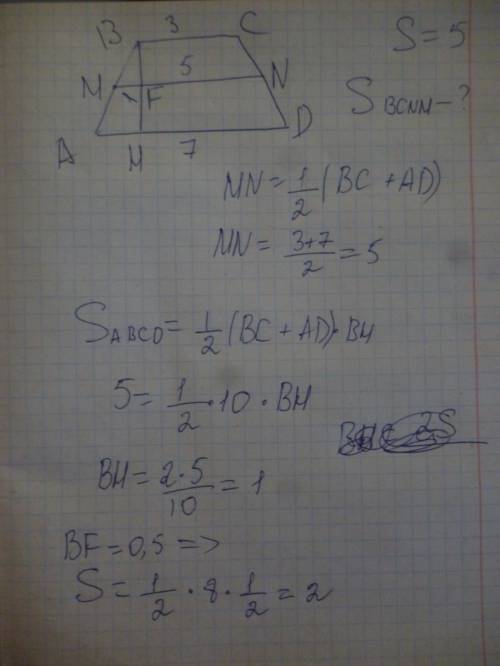 B 3 C
S = 5
M 5 N
F
S BCNM - ?
A H 7 D
MN = 1/2 (BC + AD)
MN = 3+7/2 = 5
S ABCD = 1/2 (BC + AD) · BH
5 = 1/2 · 10 · BH
2S
BH = 2·5/10 = 1
BF = 0,5 =>
S = 1/2 · 8 · 1/2 = 2